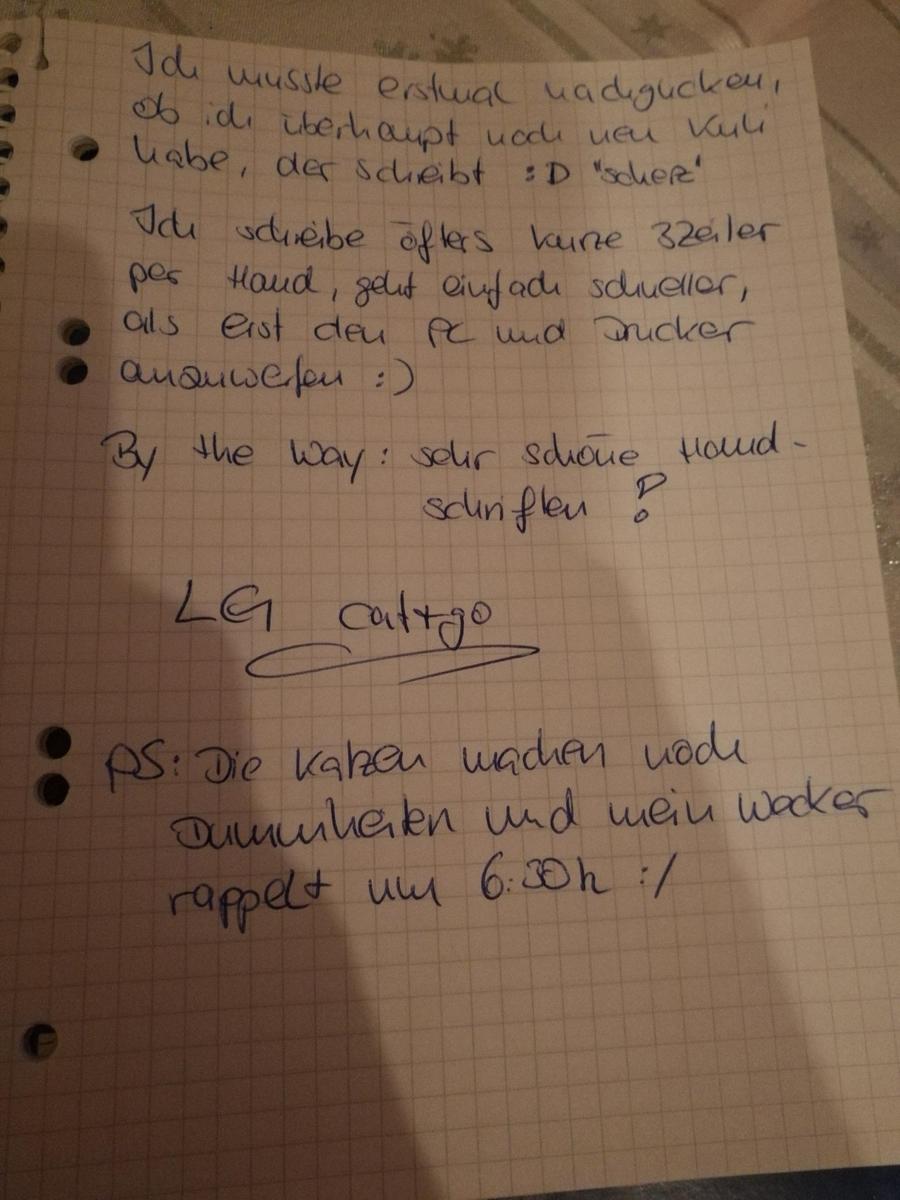 Ich musste erstmal nachgucken,
ob ich überhaupt noch nen Kuli
habe, der scheibt :D "scherz"
Ich schreibe öfters kurze 3Zeiler
per Hand, geht einfach schneller,
als erst den PC und Drucker
anzuwerfen :)
By the Way: sehr schöne Hand-
schriften !
LG cattgo
PS: Die Katzen machen noch
Dummheiten und mein Wecker
rappelt um 6:30h :/